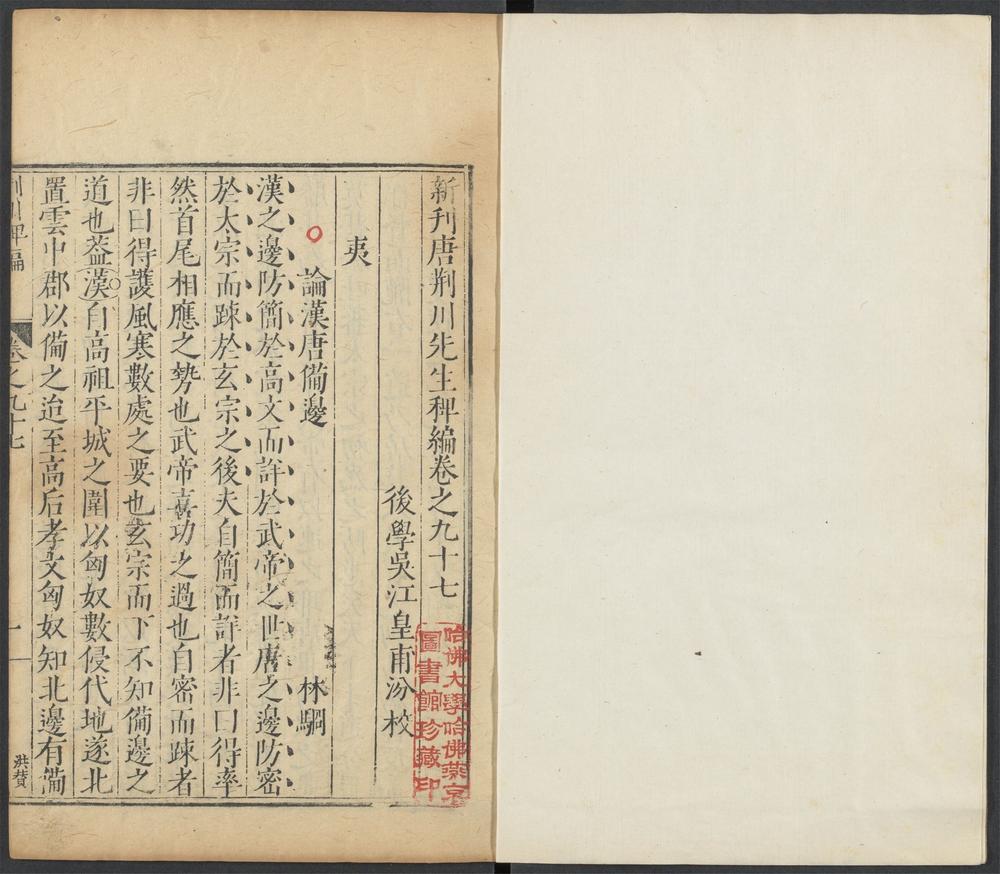 新刋唐荆川先生稗編卷之九十七
後學吳江皇甫汾校
夷
論漢唐備邊 林駉
漢之邊防簡於高文而詳於武帝之世唐之邊防密
於太宗而踈於玄宗之後夫自簡而詳者非曰得率
然首尾相應之勢也武帝喜功之過也自密而踈者
非曰得護風寒數處之要也玄宗而下不知備邊之
道也葢漢自高祖平城之圍以匈奴數侵代地遂北
置雲中郡以備之迨至高后孝文匈奴知北邊有備
荆川稗編 卷之九十七 一 洪賛
哈佛大學哈佛燕京
圖書館珍藏印